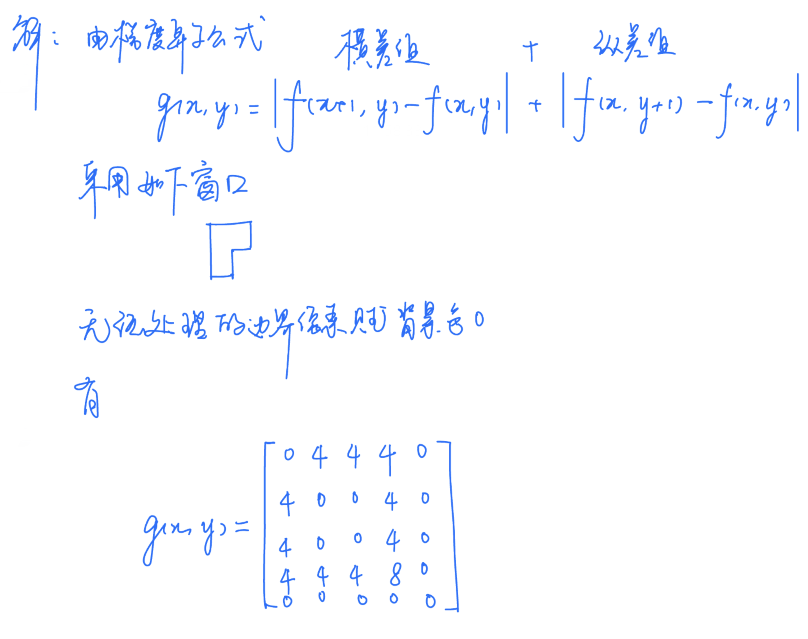 解：由梯度算子公式 横差值 + 纵差值
g(x,y) = |f(x+1,y)-f(x,y)| + |f(x,y+1)-f(x,y)|
采用如下窗口
无法处理的边界像素则背景色0
有
g(x,y) =
0 4 4 4 0
4 0 0 4 0
4 0 0 4 0
4 4 4 8 0
0 0 0 0 0